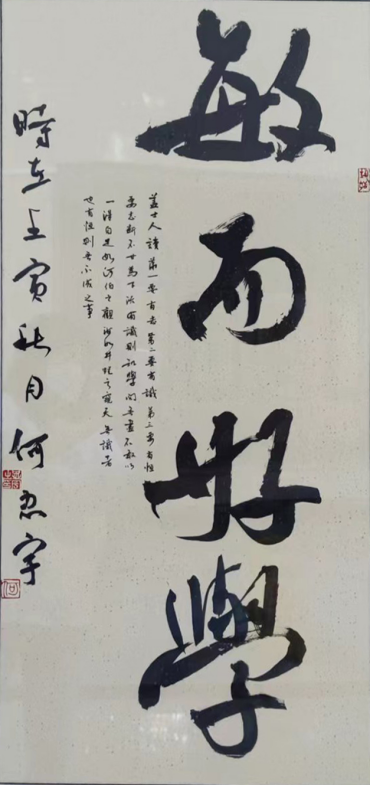 敏而好學
蓋士人讀第一要有志第二要有識第三要有恒
有志斷不甘為下流有識則知學問無盡不敢以
一得自足如河伯之觀海如井蛙之窺天無識者
也有恒則無不成之事
時在壬寅秋月何宇